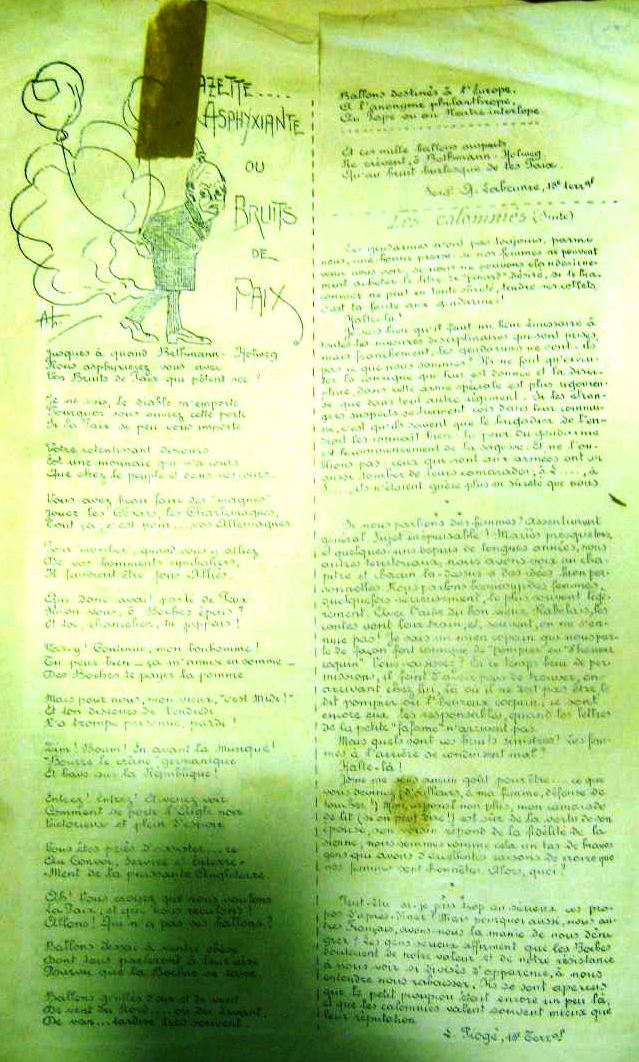 AZETTE....
ASPHYXIANTE
OU
BRUITS
DE
PAIX
Jusques à quand Bethmann-Holweg
Nous asphyxierez vous avec
Vos Bruits de Paix qui pètent sec?
Je ne sais, le diable m'emporte
Pourquoi vous ouvrez cette porte
Si la Paix si peu vous importe
Votre retentissant discours
Est une monnaie qui n'a cours
Que chez le peuple et dans vos cours
Vous avez beau faire des "magnes"
Jouer les Césars, les Charlemagnes,
Tout ça, c'est pour...vos Allemagnes
quand vous y alliez
De vos hommes
Il faudrait être fous Alliés.
Qui donc avait parlé de Paix
Sinon vous, ô Boches épais?
Et toi, chancelier, tu jappais!
Continue, mon bonhomme!
Tu peux bien - ça m'amuse en somme -
Des Boches te payer la pomme
Mais pour nous, mon vieux, "c'est Midi!"
Et ton discours de Vendredi
N'a trompé personne, pardi!
Zim! Boum! En avant la Musique!
Bourre le crâne germanique
Et bave sur la République!
Entrez! Entrez! Et venez voir
Comment se porte l'Aigle noir
Victorieux et plein d'espoir
Vous êtes priés d'assister...re
Au Convoi, Service et Enterre-
-Ment de la puissante Angleterre
Ah! Vous croyez que nous voulons
La Paix, et que nous reculons!
Allons! Qui n'a pas ses ballons?
Ballons d'essai à ventre obèse
Dont tous parleront à leur aise
Pourvu que la Boche se taise
Ballons gonflés d'air et de vent
De vent du Nord....ou du Levant,
De van...tardise très souvent
Ballons destinés à l'Europe,
A l'anonyme philanthrope,
Au Pape ou au Neutre interlope
Et ces mille ballons suspects
Ne crèvent, ô Bethmann-Holweg
Qu'au bruit burlesque de tes Paix.
Sergt A. 18e Terral
Les calomnies (Suite)
Les gendarmes n'ont pas toujours, parmi
nous, une bonne presse. Si nos femmes ne peuvent
venir nous voir, si nous ne pouvons clandestine-
ment acheter le litre de "pinard" désiré, si le bra-
connier ne peut en toute sûreté, tendre ses collets,
c'est la faute aux gendarmes!
Halte-là!
Je sais bien qu'il faut un bouc émissaire à
toutes les mesures disciplinaires qui sont prises,
mais franchement, les gendarmes ne sont-ils
pas ce que nous sommes? Ils ne font qu'exécu-
ter la consigne qui leur est donnée et la disci-
pline, dans cette arme spéciale est plus rigoureu-
se que dans tout autre régiment. Si les étran-
gers suspects se trouvent rares dans leur commu-
ne, c'est qu'ils savent que le brigadier de l'en-
droit les connaît bien: la peur du gendarme
est le commencement de la sagesse. Et ne l'ou-
blions pas, ceux qui sont aux armées ont vu
aussi tomber de leurs camarades; à L...., à
ils n'étaient guère plus en sûreté que nous.
Si nous parlions des femmes? Assentiment
général. Sujet inépuisable! Mariés presque tous,
et quelques uns depuis de longues années, nous
autres territoriaux, nous avons voix au cha-
pitre et chacun là-dessus a des idées bien per-
sonnelles. Nous parlons beaucoup des femmes,
quelquefois sérieusement, le plus souvent légè-
rement. Avec l'aide du bon vieux Rabelais, les
contes vont leur train, et, souvent, on ne s'en-
nuie pas! Je sais un mien copain qui nous par-
le de façon fort comique de "pompier" ou "d'heureux
coquin". Vous saisissez? En ce temps béni de per-
missions, il feint d'avoir peur de trouver, en
arrivant chez lui, là où il ne doit pas être, le
dit pompier ou l'heureux coquin; ce sont
encore eux les responsables, quand les lettres
de la petite "fafame" n'arrivent pas.
Mais quels sont ces bruits sinistres! Les fem-
mes à l'arrière se conduisent mal?
Halte-là!
Je ne me sens aucun goût pour être... ce que
vous devinez (d'ailleurs, à ma femme, défense de
toucher!) Mon caporal non plus, mon camarade
de lit (si on peut dire!) est sûr de la vertu de son
épouse, son voisin répond de la fidélité de la
sienne, nous sommes comme cela un tas de braves
gens qui avons d'excellentes raisons de croire que
nos femmes sont honnêtes. Alors, quoi?
Peut-être ai-je pris trop au sérieux ces pro-
pos d'après-dîner? Mais pourquoi aussi, nous au-
tres Français, avons-nous la manie de nous déni-
grer? Les gens sérieux affirment que les Boches
doutaient de notre valeur et de notre résistance
à nous voir si divisés d'apparence, à nous
entendre nous rabaisser. Ils se sont aperçus
que le petit pioupiou était encore un peu là,
et que les calomniés valent souvent mieux que
leur réputation.
L. Progé, 18e Terral